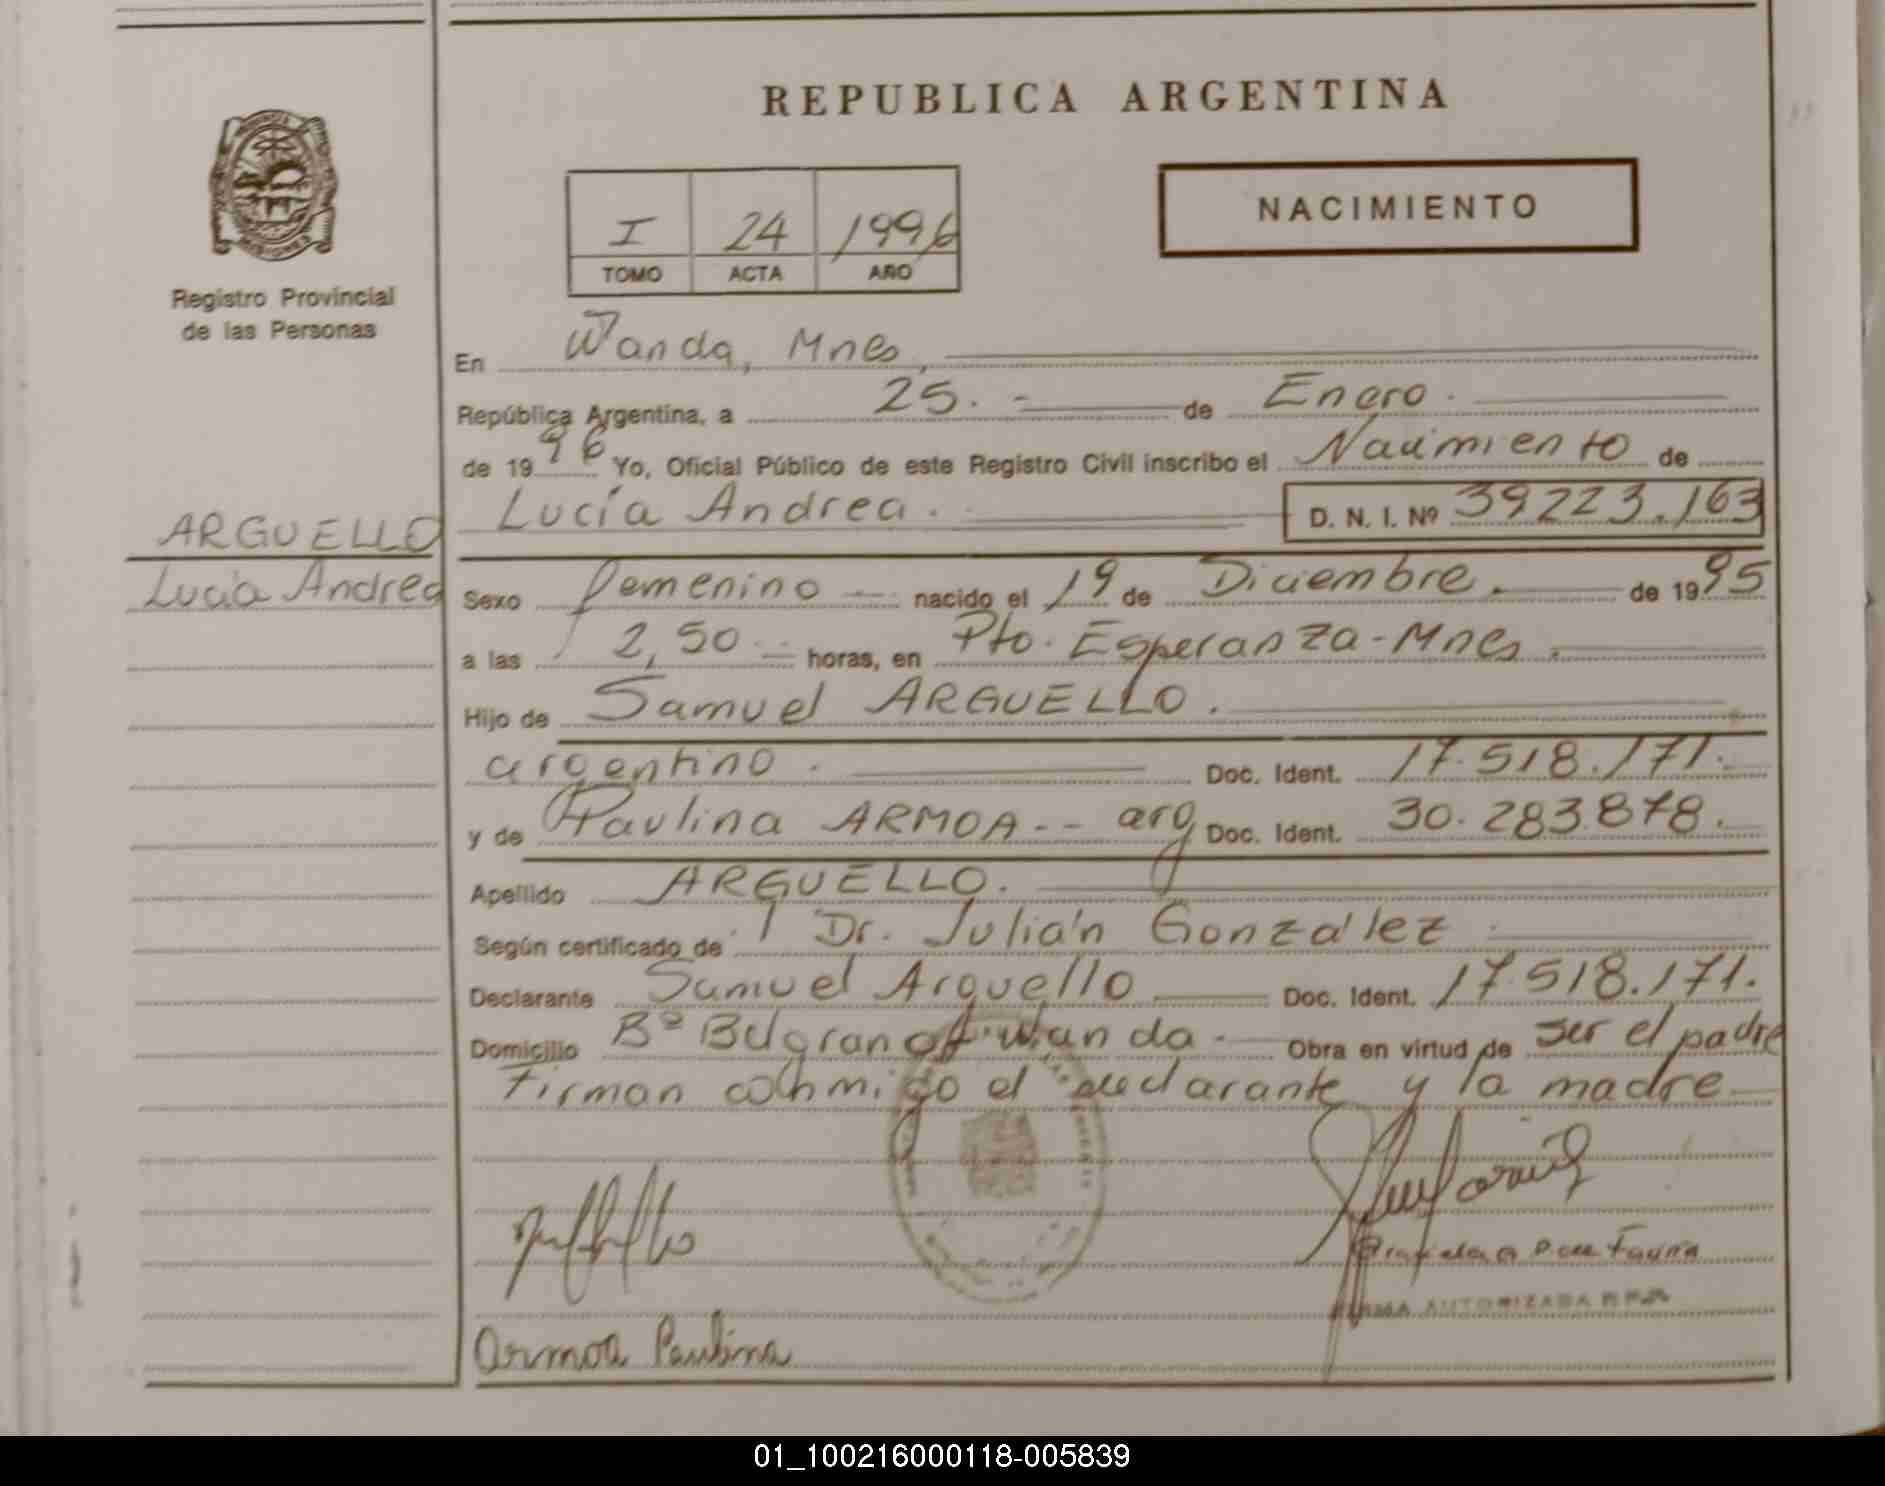 REPUBLICA ARGENTINA
NACIMIENTO
I 24 1996
TOMO ACTA AÑO
Registro Provincial
de las Personas
En Wanda, Mnes,
República Argentina, a 25. - de Enero.
de 1996 Yo, Oficial Público de este Registro Civil inscribo el Nacimiento de
Lucía Andrea. D. N. I. Nº 39223.163
ARGUELLO
Lucia Andrea
Sexo femenino nacido el 19 de Diciembre. de 1995
a las 2,50 horas, en Pto. Esperanza - Mnes.
Hijo de Samuel ARGUELLO.
argentino. Doc. Ident. 17.518.171.
y de Paulina ARMOA -- arg Doc. Ident. 30.283.878.
Apellido ARGUELLO.
Según certificado de Dr. Julián González.
Declarante Samuel Arguello Doc. Ident. 17.518.171.
Domicilio Bº Belgrano Wanda - Obra en virtud de ser el padre
Firman conmigo el declarante y la madre
FIRMA AUTORIZADA
Armoa Paulina
01_100216000118-005839